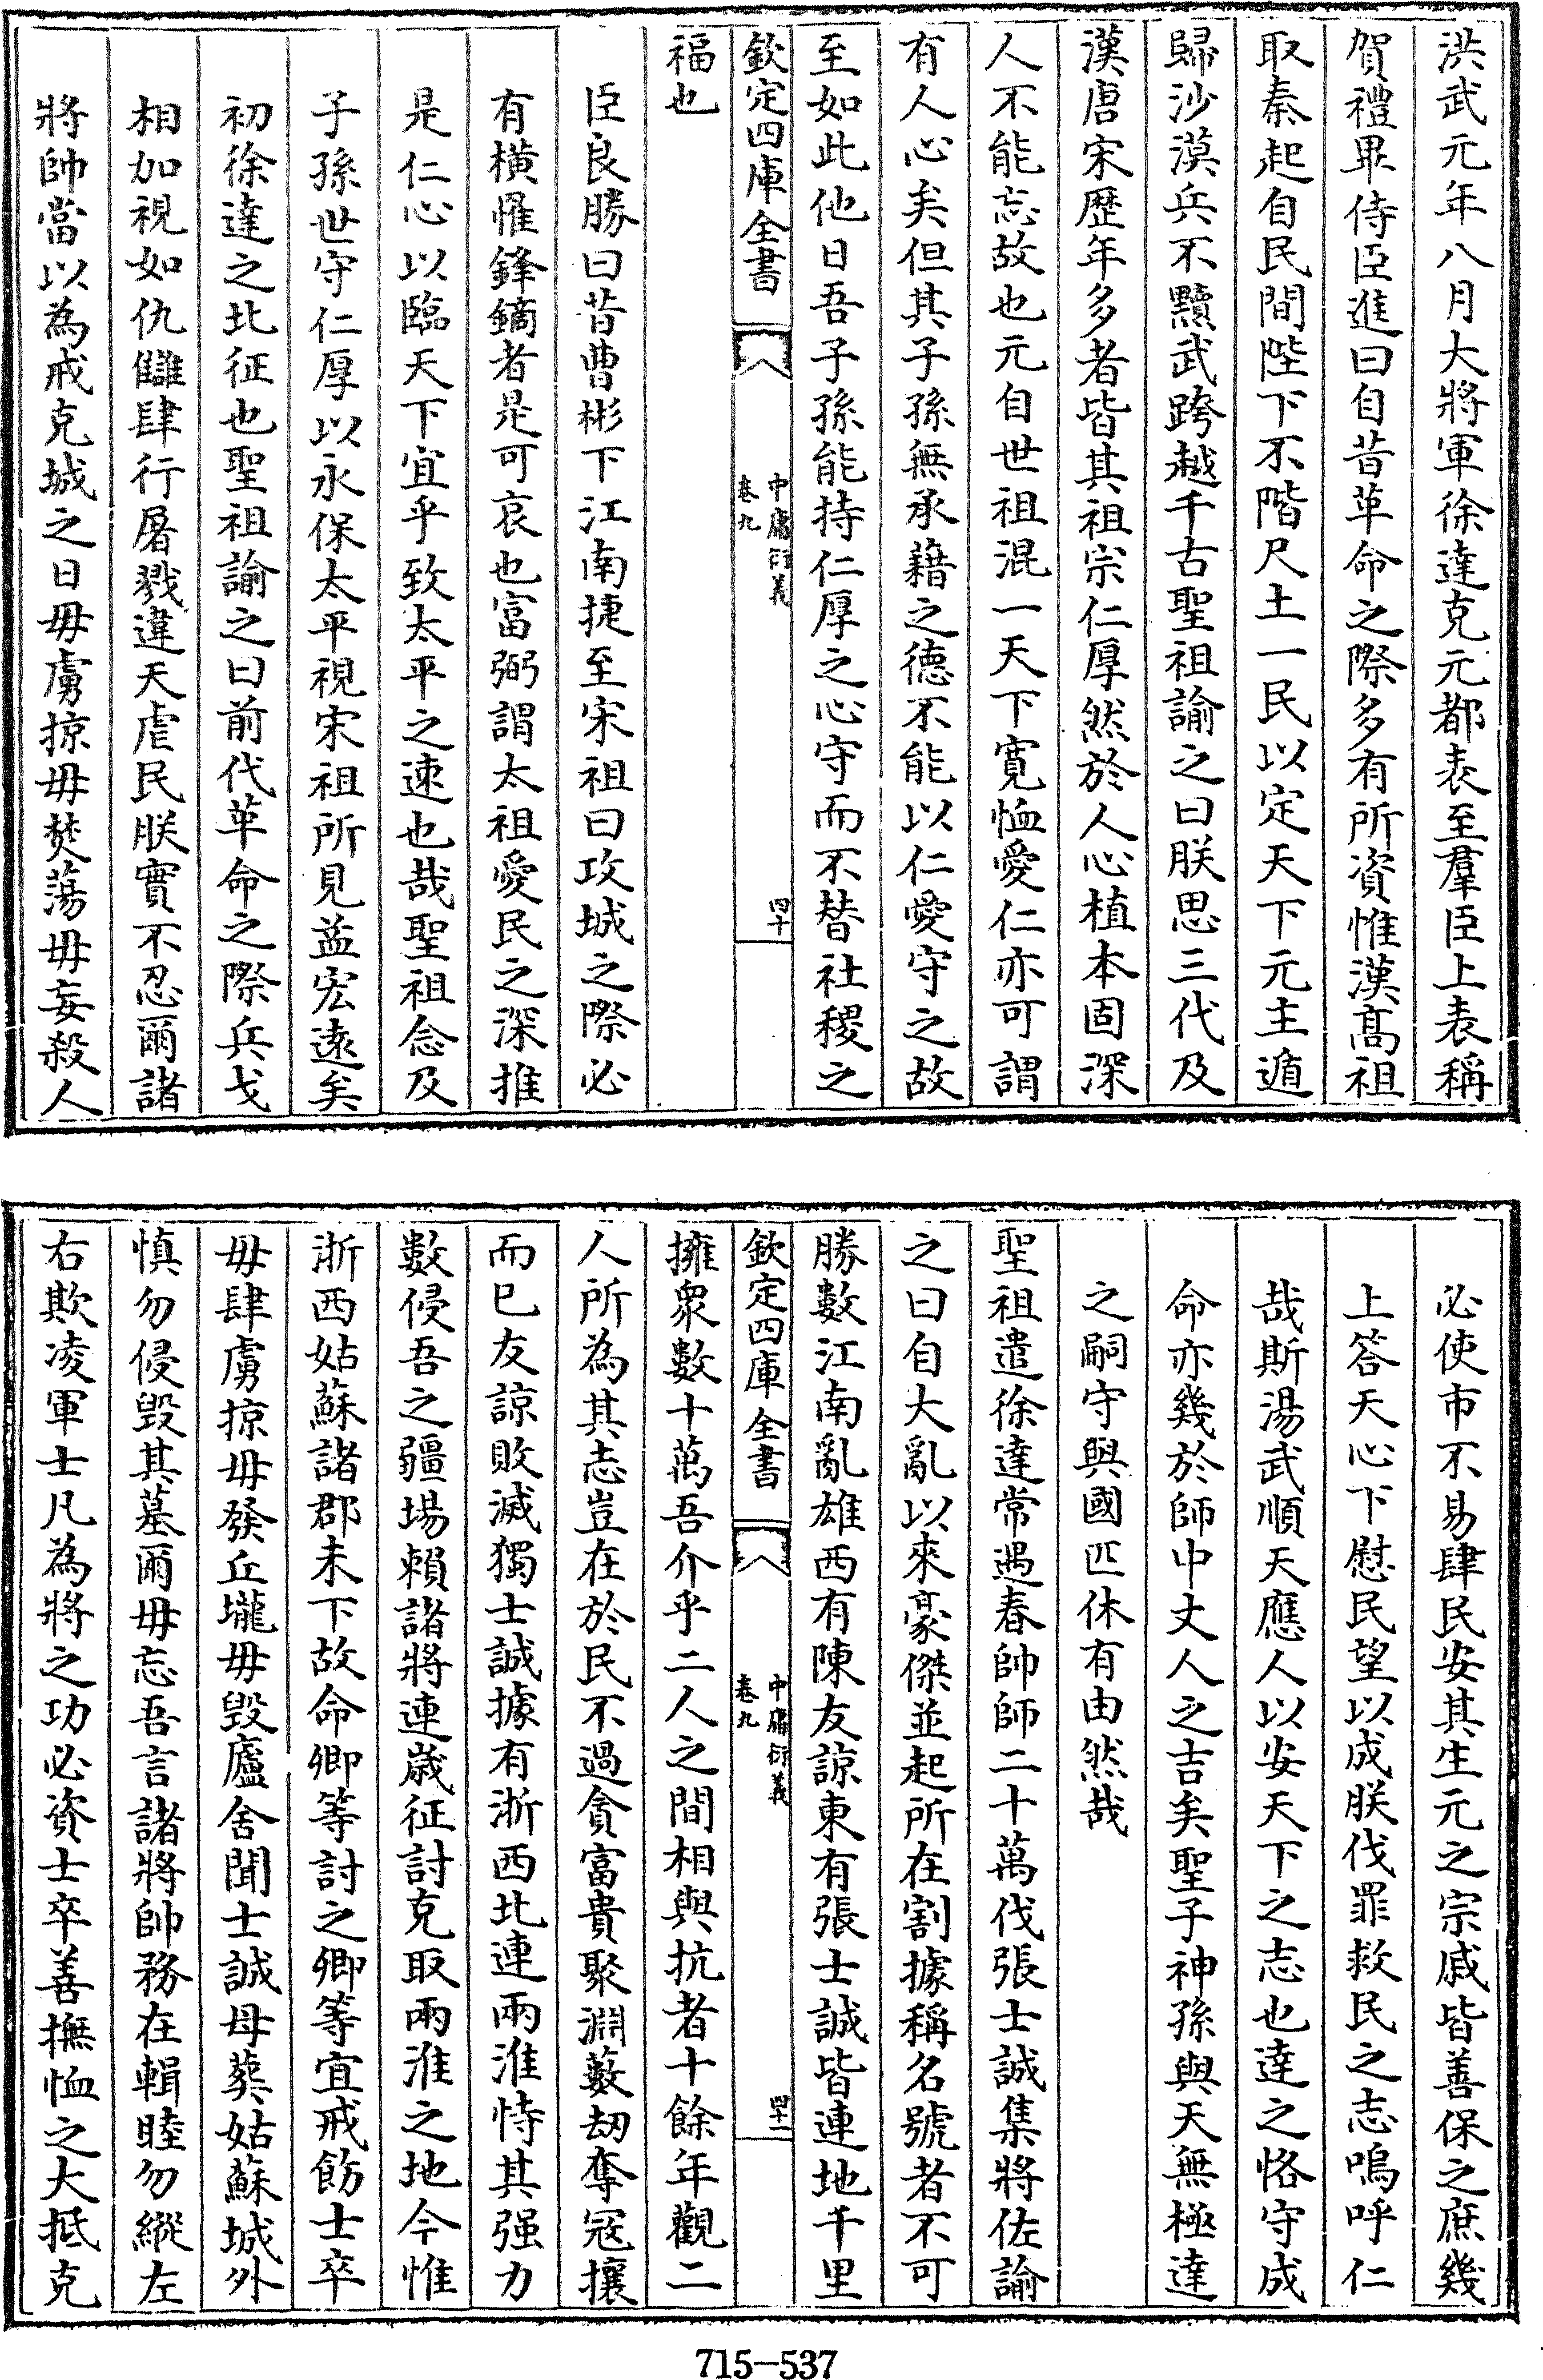 洪武元年八月大將軍徐達克元都表至羣臣上表稱
賀禮畢侍臣進曰自昔革命之際多有所資惟漢髙祖
取秦起自民間陛下不階尺土一民以定天下元主遁
歸沙漠兵不黷武跨越千古聖祖諭之曰朕思三代及
漢唐宋歴年多者皆其祖宗仁厚然於人心植本固深
人不能忘故也元自世祖混一天下寛恤愛仁亦可謂
有人心矣但其子孫無承藉之徳不能以仁愛守之故
至如此他日吾子孫能持仁厚之心守而不替社稷之
欽定四庫全書
中庸衍義
卷九
四十
福也
臣良勝曰昔曹彬下江南捷至宋祖曰攻城之際必
有橫罹鋒鏑者是可哀也富弼謂太祖愛民之深推
是仁心以臨天下宜乎致太平之速也哉聖祖念及
子孫世守仁厚以永保太平視宋祖所見益宏遠矣
初徐達之北征也聖祖諭之曰前代革命之際兵戈
相加視如仇讎肆行屠戮違天虐民朕實不忍爾諸
將帥當以為戒克城之日毋虜掠毋焚蕩毋妄殺人
必使市不易肆民安其生元之宗戚皆善保之庶幾
上答天心下慰民望以成朕伐罪救民之志嗚呼仁
哉斯湯武順天應人以安天下之志也達之恪守成
命亦幾於師中丈人之吉矣聖子神孫與天無極達
之嗣守與國匹休有由然哉
聖祖遣徐達常遇春帥師二十萬伐張士誠集將佐諭
之曰自大亂以來豪傑並起所在割據稱名號者不可
勝數江南亂雄西有陳友諒東有張士誠皆連地千里
欽定四庫全書
中庸衍義
卷九
四十一
擁衆數十萬吾介乎二人之間相與抗者十餘年觀二
人所為其志豈在於民不過貪富貴聚淵藪刼奪冦攘
而已友諒敗滅獨士誠據有浙西北連兩淮恃其强力
數侵吾之疆場賴諸將連嵗征討克取兩淮之地今惟
浙西姑蘇諸郡未下故命卿等討之卿等宜戒飭士卒
毋肆虜掠毋發丘壠毋毀廬舍聞士誠母葬姑蘇城外
慎勿侵毀其墓爾毋忘吾言諸將帥務在輯睦勿縱左
右欺凌軍士凡為將之功必資士卒善撫恤之大抵克
715-537